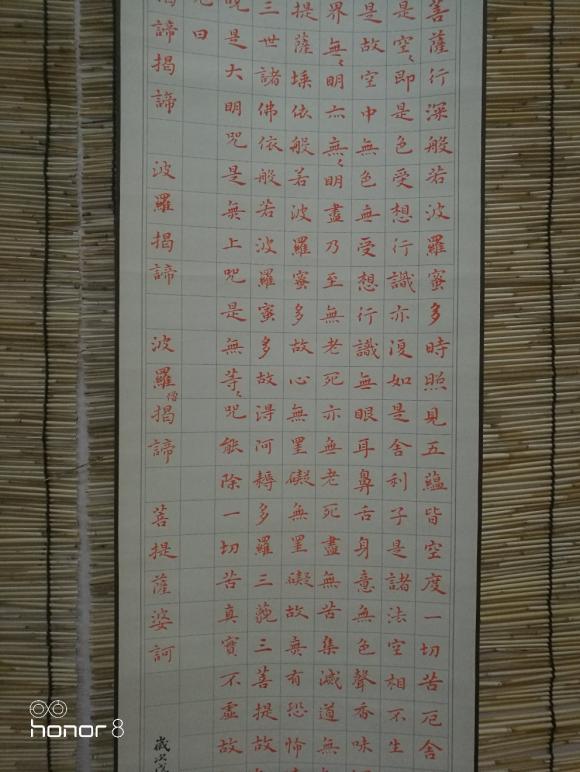 菩薩行深般若波羅蜜多時照見五蘊皆空度一切苦厄舍
是空〻即是色受想行識亦復如是舍利子是諸法空相不生
是故空中無色無受想行識無眼耳鼻舌身意無色聲香味
界無〻明亦無〻明盡乃至無老死亦無老死盡無苦集滅道無
提薩埵依般若波羅蜜多故心無罣礙無罣礙故無有恐怖
三世諸佛依般若波羅蜜多故得阿耨多羅三藐三菩提故
是大明咒是無上咒是無等〻咒能除一切苦真實不虛故
曰
諦揭諦 波羅揭諦 波羅僧揭諦 菩提薩婆訶
歲次
honor 8